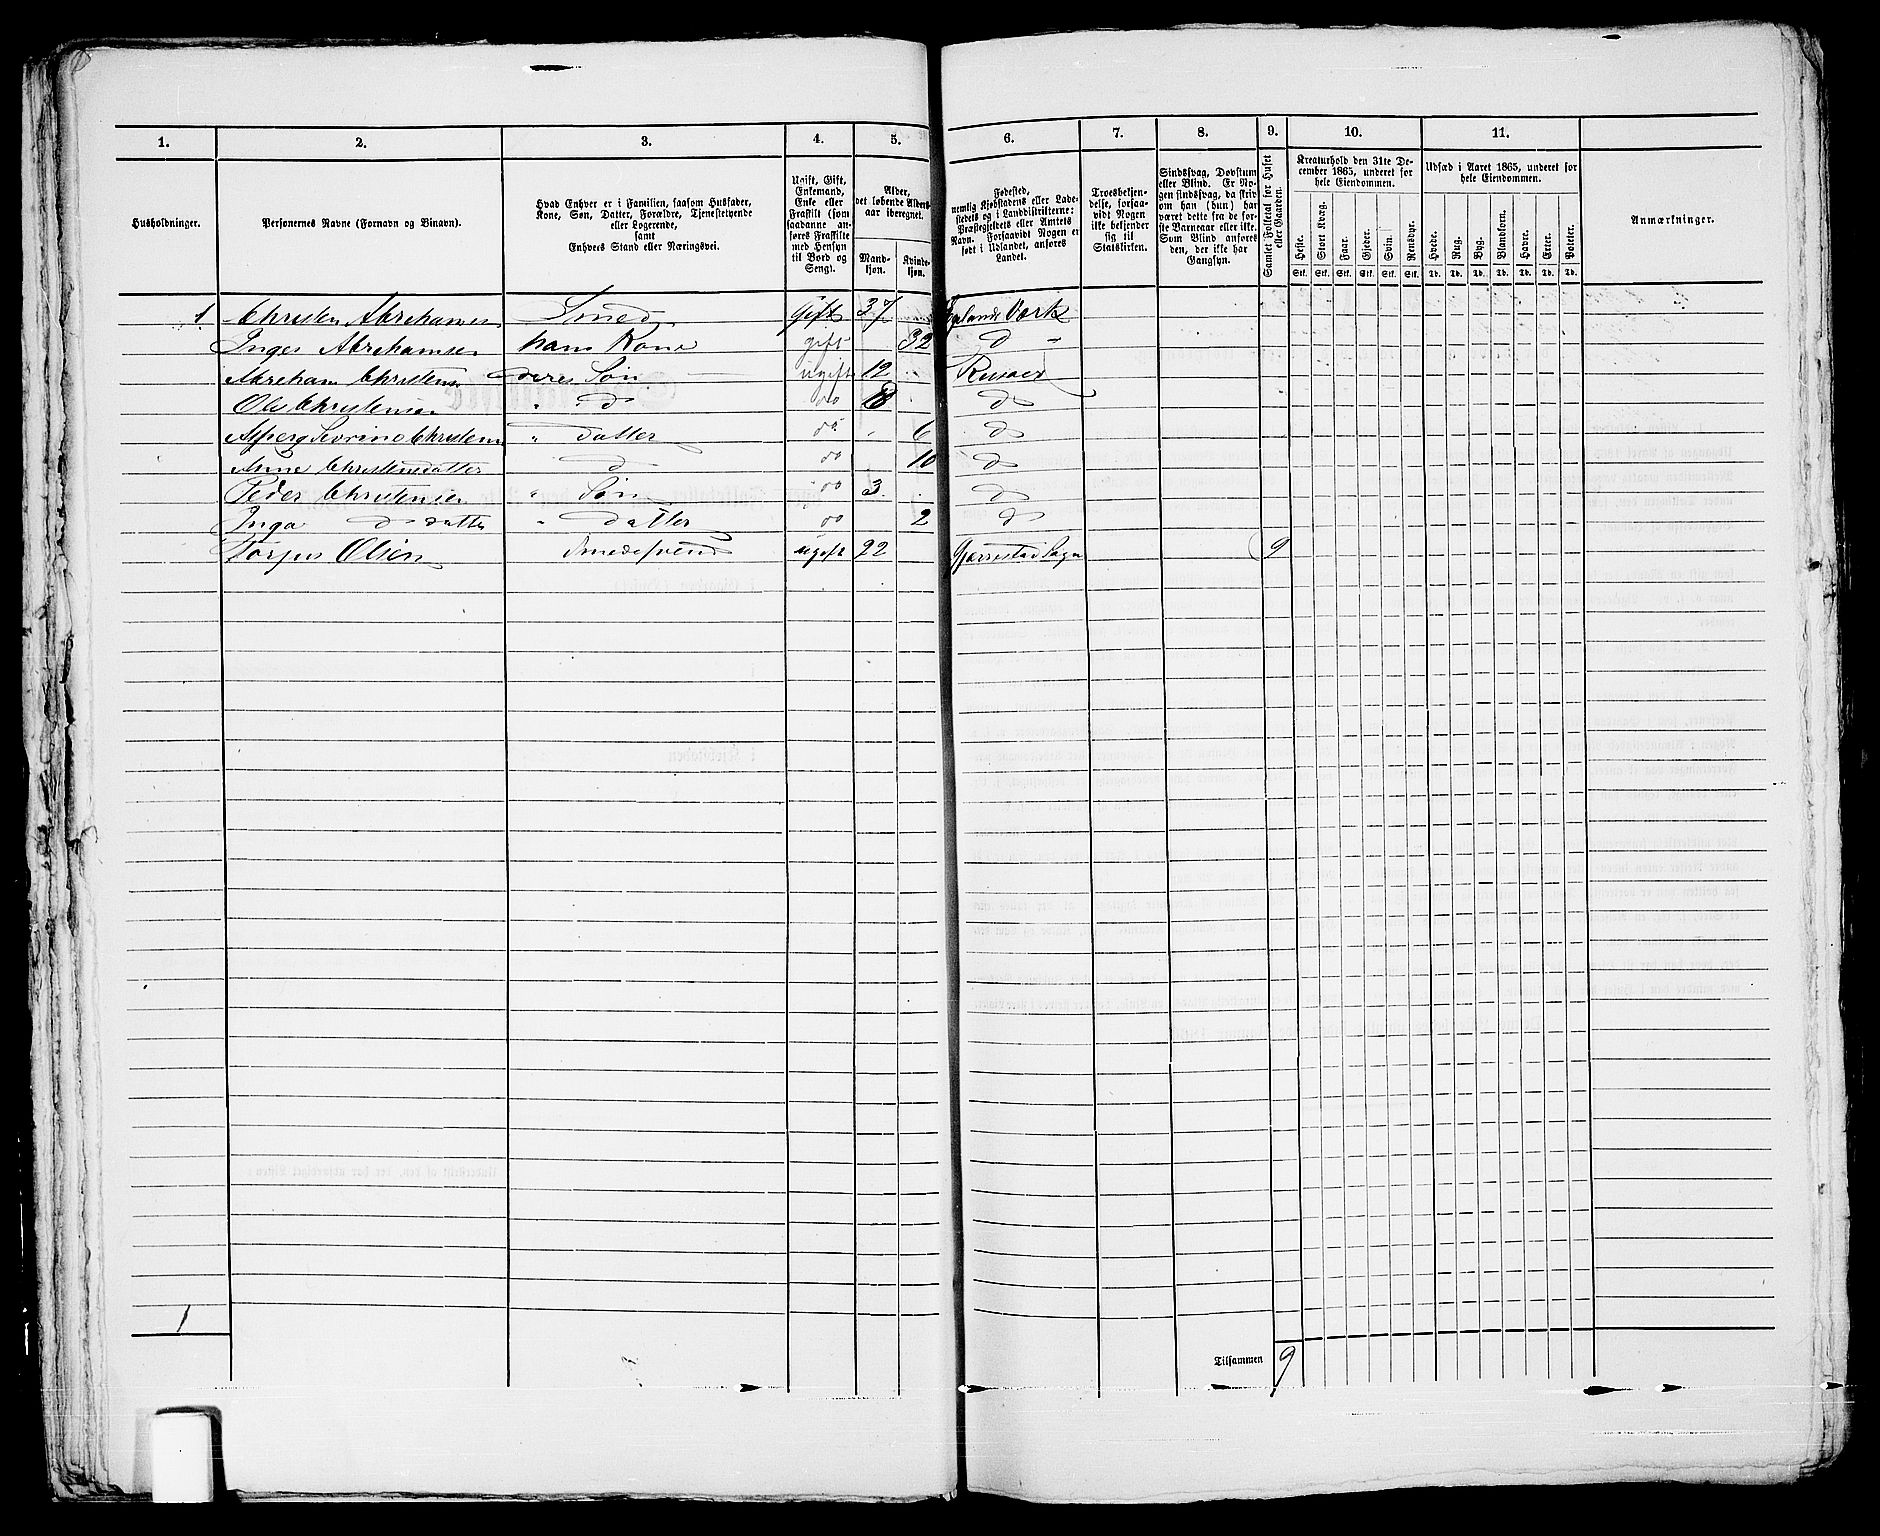 1. 2. 3. 4. 5. 6. 7. 8. 9. 10. 11.
Husholdninger.
Personernes Navne (Fornavn og Binavn).
Hvad Enhver er i Familien, saasom Husfader,
Kone, Søn, Datter, Forældre, Tjenestetyende
eller Logerende,
samt
Enhvers Stand eller Næringsvei.
Ugift, Gift,
Enkemand,
Enke eller
Fraskilt (som
saadanne an-
føres Fraskilte
med Hensyn
til Bord og
Seng).
Alder,
det løbende Alders-
aar iberegnet.
Mand-
kjøn.
Kvinde-
kjøn.
Fødested,
nemlig Kjøbstadens eller Lade-
stedets og i Landdistrikterne:
Præstegjeldets eller Amtets
Navn. Forsaavidt Nogen er
født i Udlandet, anføres
Landet.
Troesbekjen-
delse, forsaa-
vidt Nogen
ikke bekjender
sig til
Statskirken.
Sindssvag, Døvstum
eller Blind. Er No-
gen sindssvag, da skriv
om han (hun) har
været dette fra de for-
ste Barneaar eller ikke.
Som Blind anføres
den, der ikke har
Gangsyn.
Samlet Folketal for Huset
eller Gaarden.
Kreaturhold den 31te De-
cember 1865, underet for
hele Eiendommen.
Heste. Stort Kvæg. Faar. Gjeder. Svin. Rensdyr.
Stk. Stk. Stk. Stk. Stk. Stk.
Udsæd i Aaret 1865, underet for
hele Eiendommen.
Hvede. Rug. Byg. Blandkorn. Havre. Erter. Poteter.
Td. Td. Td. Td. Td. Td. Td.
Anmærkninger.
1 Christen Abrehamsen Smed Gift 37 Værk
Inges Abrehamsen hans Kone gift 32 d "
Abreham Christensen deres Søn ugift 12 Risøer
Ole Christensen " d do 8 d
Christensen " datter do 6 d
Anne Christensdatter d do 10 d
Peder Christensen " Søn do 3 d
Inga d datter " datter do 2 d
Torjus Olsen Smedesvend ugift 22 Gjerrestad Sogn 9
1
Tilsammen 9